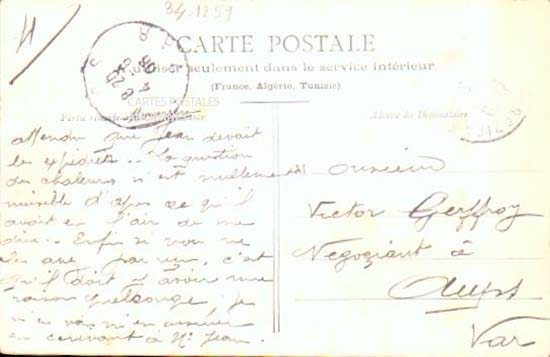 34-1259
CARTE POSTALE
utiliser seulement dans le service intérieur
(France, Algérie, Tunisie)
CARTES POSTALES
Partie
Adresse du Destinataire
attendu que Jean devait
les expédier.. La question
des chaleurs n'est nullement
nuisible d'après ce qu'il
avait en l'air de me
dire.. Enfin si vous ne
les avez pas reçu, c'est
qu'il doit y avoir une
raison quelconque; je
vais m'en assurer
en écrivant à Mr Jean.
Monsieur
Victor Geoffroy
Négociant à
Aups
Var